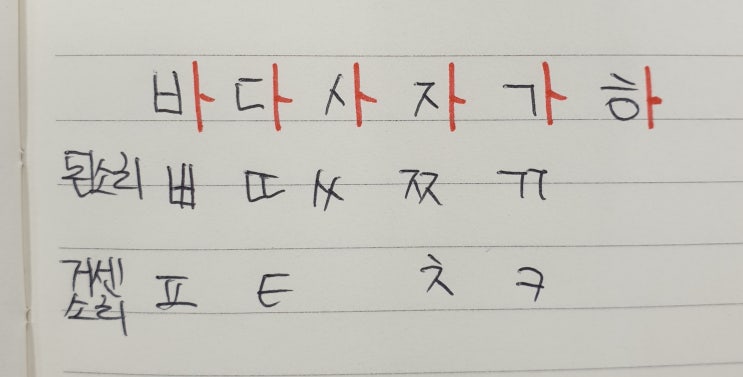 바 다 사 자 가 하
된소리 ㅃ ㄸ ㅆ ㅉ ㄲ
거센소리 ㅍ ㅌ ㅊ ㅋ